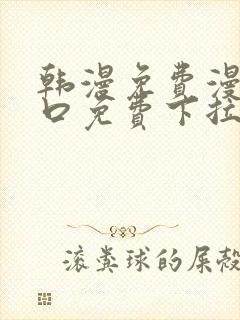 韩漫免费漫
口免费下拉
滚粪球的屎殼